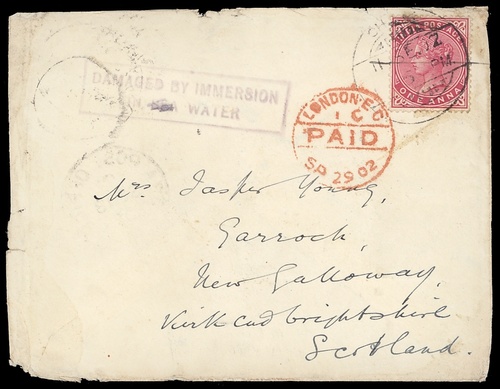 INDIA POSTAGE
ONE ANNA
DAMAGED BY IMMERSION
IN SEA WATER
LONDON.E.C
1 C
PAID
SP 29 02
Mrs Jasper Young,
Garroch,
New Galloway,
Kirkcudbrightshire
Scotland.